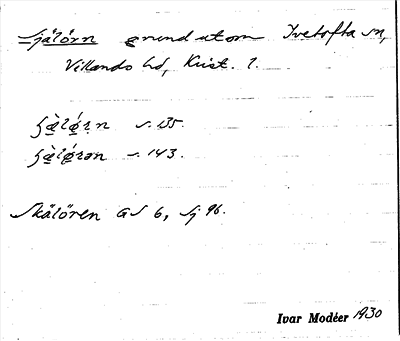 Själörn grund utom Ivetofta sn,
Villands hd, Krist. l.
s. 135.
s. 143.
Skälören GS 6, Sj 96.
Ivar Modéer 1930